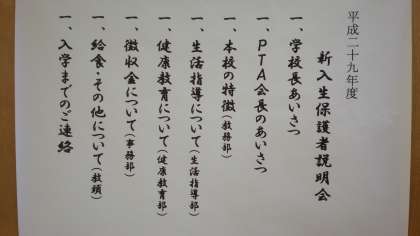 平成二十九年度
新入生保護者説明会
一、学校長あいさつ
一、PTA会長のあいさつ
一、本校の特徴(教務部)
一、生活指導について(生活指導部)
一、健康教育について(健康教育部)
一、徴収金について(事務部)
一、給食・その他について(教頭)
一、入学までのご連絡